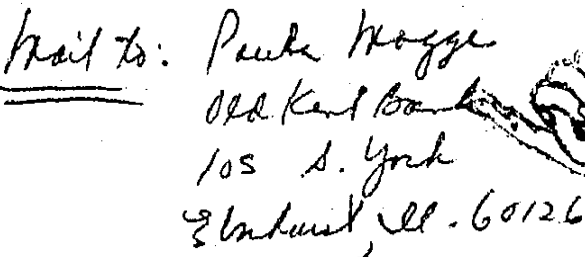 Mail to: Paula Magge
Old Kent Bank
105 S. York
Elmhurst, Ill. 60126